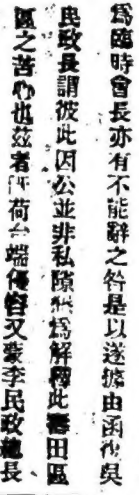 為臨時會長亦有不能辭之咎是以遂據由函復吳
民政長謂彼此因公並非私隙為解釋此田區
區之苦心也茲者荷台端優容又蒙李民政總長